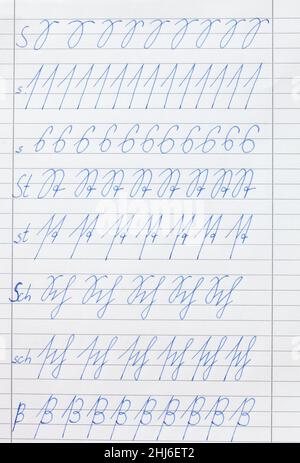 S S S S S S S S S S
s ſ ſ ſ ſ ſ ſ ſ ſ ſ ſ ſ ſ ſ ſ ſ
s s s s s s s s s s s s s
St St St St St St St St
st st st st st st st st
Sch Sch Sch Sch Sch Sch
sch sch sch sch sch sch sch
ß ß ß ß ß ß ß ß ß
alamy